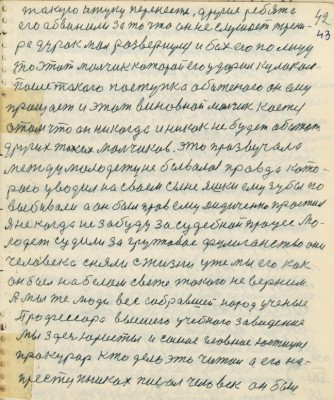 такую штуку перенести, другие ребята
его обвинили за то что он не слушает трене-
ра дурак мол развернулся и был его по лицу
42
43
этот мальчик которой его ударил кулаком
После такого поступка обиженого он ему
прощает и этот виновной мальчик кается
о том что он никогда и никак не будет обижат
других таких мальчиков. Это прозвучала
между молодежу не бывала правда кото-
рого уводил на своем сыне яшки ему зубы по
выбивали а он был прав ему индиченко простил
Я никогда не забуду за судебной процес мо-
лодеж судили за групавое фулиганство они
человека сняли с жизни уже мы его как
он был на белом свете такого не вернем.
А мы же люди вес собравшей народ ученые
Профессора высшего учебного заведения
мы здеи юристы и самая главная юстиция
пракурар кто дело это читал а его на-
преступниках писал человек он был